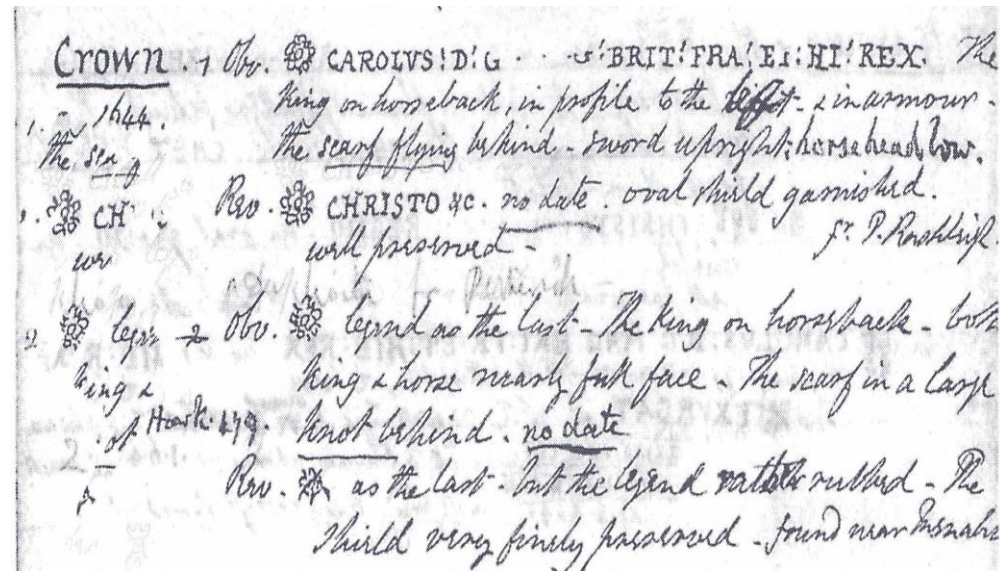 Crown 1 Obv. CAROLVS: D: G : BRIT: FRA: ET: HI: REX. The
1. - 1644. King on horseback, in profile to the left - & in armour -
the sca the scarf flying behind - sword upright: horse head low.
1. CH Rev. CHRISTO &c. no date. oval shield garnished.
we well preserved - fr. P. Rashleigh
2 legn 2 Obv. legend as the last - The King on horseback - both
King & King & horse nearly full face - The scarf in a large
of Hawk. 479. Knot behind. no date
Rev. as the last - but the legend rather rubbed - The
Shield very finely preserved - found near